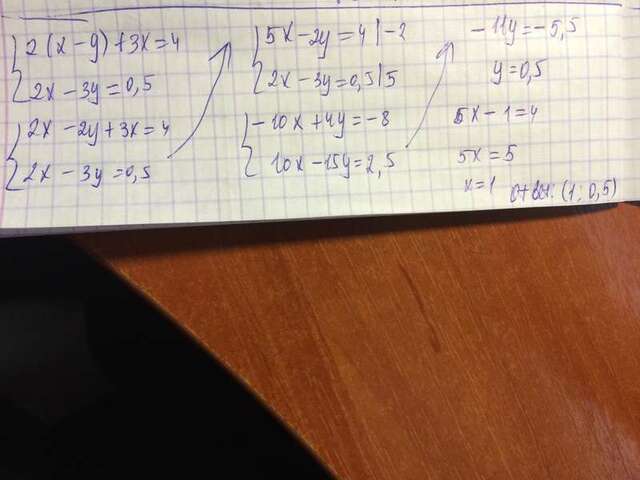 2(x-y)+3x=4
2x-3y=0,5
2x-2y+3x=4
2x-3y=0,5
5x-2y=4|-2
2x-3y=0,5|5
-10x+4y=-8
10x-15y=2,5
-11y=-5,5
y=0,5
5x-1=4
5x=5
x=1 ответ: (1; 0,5)